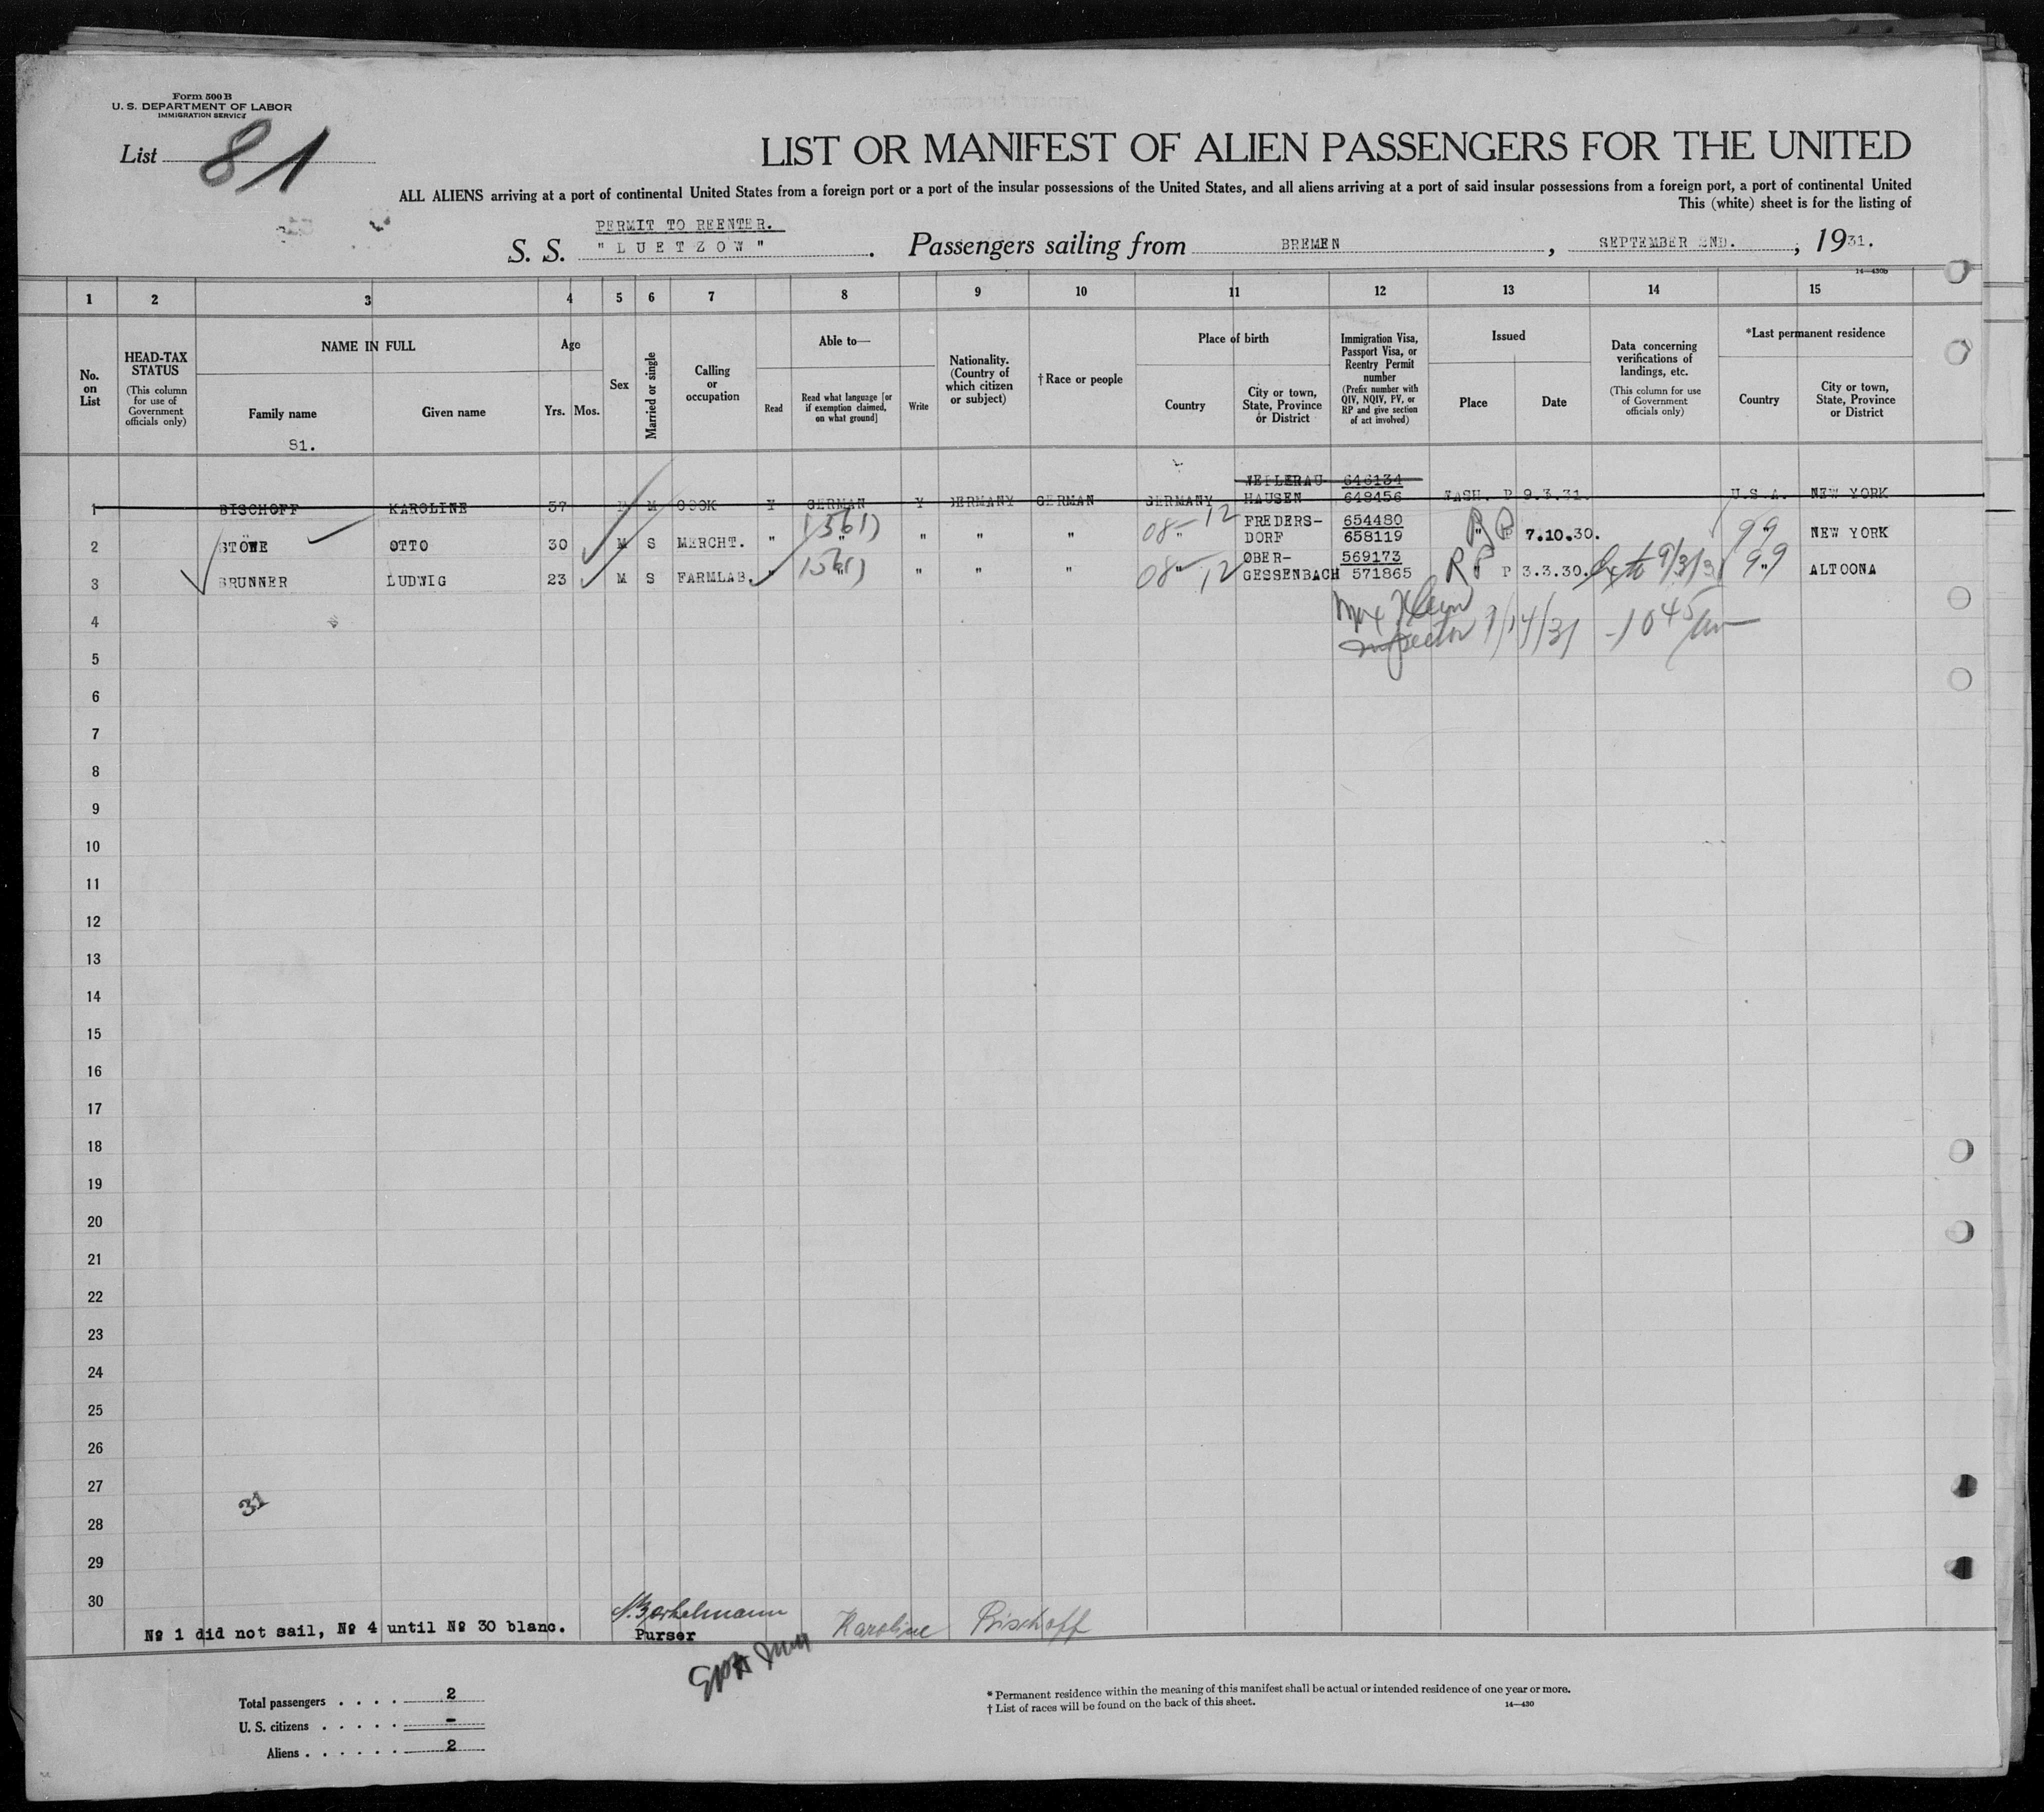 Form 500 B
U. S. DEPARTMENT OF LABOR
IMMIGRATION SERVICE
List 81
LIST OR MANIFEST OF ALIEN PASSENGERS FOR THE UNITED
ALL ALIENS arriving at a port of continental United States from a foreign port or a port of the insular possessions of the United States, and all aliens arriving at a port of said insular possessions from a foreign port, a port of continental United
This (white) sheet is for the listing of
PERMIT TO REENTER.
S. S. "LUETZOW". Passengers sailing from BREMEN, SEPTEMBER 2ND., 1931.
14—430b
1 2 3 4 5 6 7 8 9 10 11 12 13 14 15
No. on List
HEAD-TAX STATUS
(This column for use of Government officials only)
NAME IN FULL
Family name
Given name
81.
Age
Yrs. Mos.
Sex
Married or single
Calling or occupation
Able to—
Read
Read what language [or if exemption claimed, on what ground]
Write
Nationality. (Country of which citizen or subject)
† Race or people
Place of birth
Country
City or town, State, Province or District
Immigration Visa, Passport Visa, or Reentry Permit number
(Prefix number with QIV, NQIV, PV, or RP and give section of act involved)
Issued
Place
Date
Data concerning verifications of landings, etc.
(This column for use of Government officials only)
*Last permanent residence
Country
City or town, State, Province or District
WEILERAU 646134
1 BISCHOFF KAROLINE 37 F M COOK Y GERMAN Y GERMANY GERMAN GERMANY HAUSEN 648456 WASH. P 9.3.31. U.S.A. NEW YORK
08-12 FREDERS- 654480
2 STÖWE OTTO 30 M S MERCHT. " " " " " " DORF 658119 " P 7.10.30. 99 " NEW YORK
08-12 OBER- 569173
3 BRUNNER LUDWIG 23 M S FARMLAB. " " " " " " GESSENBACH 571865 RP " P 3.3.30. 99 " ALTOONA
4
Inspector 9/14/31
5
6
7
8
9
10
11
12
13
14
15
16
17
18
19
20
21
22
23
24
25
26
27
31
28
29
30
№ 1 did not sail, № 4 until № 30 blanc.
Purser
Karoline Bischoff
Total passengers . . . . 2
U. S. citizens . . . . . -
Aliens . . . . . . 2
* Permanent residence within the meaning of this manifest shall be actual or intended residence of one year or more.
† List of races will be found on the back of this sheet.
14—430